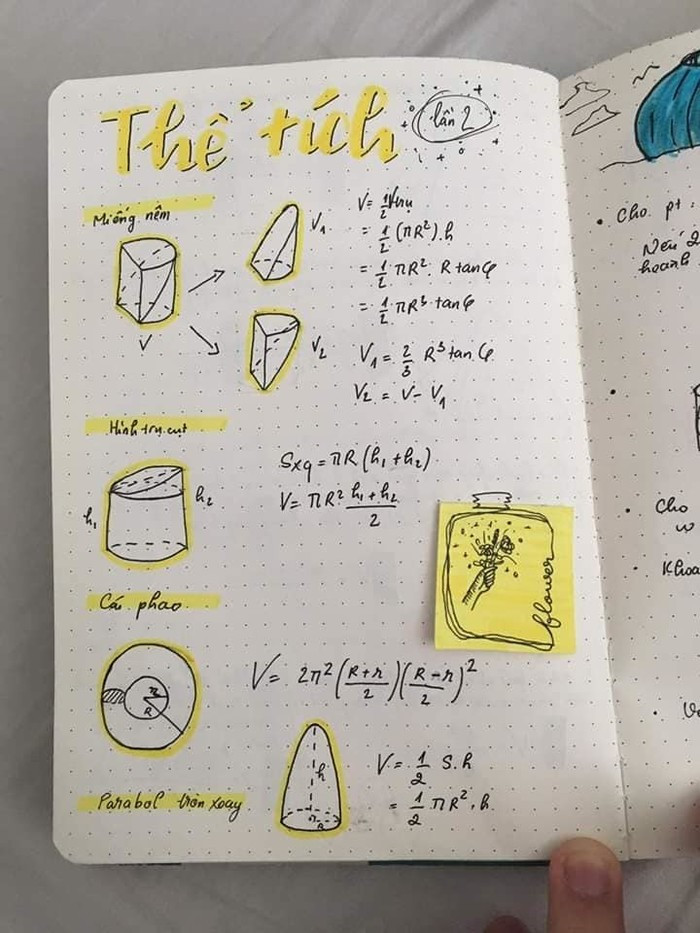 Thể tích
lần 2
Miếng nêm
V
V₁
V₂
V = 1/2 Vtrụ
= 1/2 (πR²).h
= 1/2 πR². R tanφ
= 1/2 πR³ tanφ
V₁ = 2/3 R³ tanφ
V₂ = V - V₁
Hình trụ cụt
h₁
h₂
Sxq = πR(h₁ + h₂)
V = πR² (h₁ + h₂)/2
flower
Cái phao
r
R
V = 2π² ((R+r)/2)((R-r)/2)²
Parabol tròn xoay
h
R
V = 1/2 S.h
= 1/2 πR².h
• Cho pt :
Nếu 2
hoành
• Cho
• Khoả